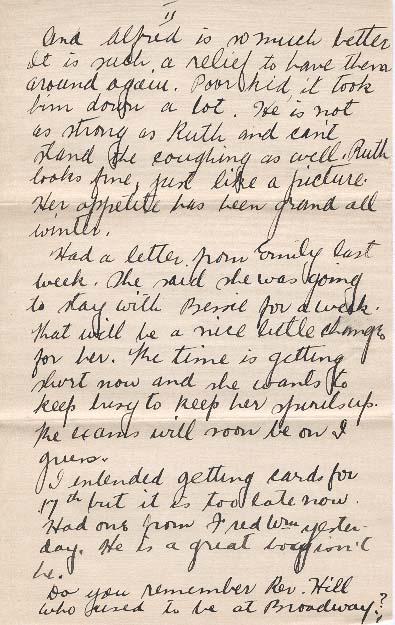 11
And Alfred is so much better
It is such a relief to have them
around again. Poor kid, it took
him down a lot. He is not
as strong as Ruth and can't
stand the coughing as well. Ruth
looks fine, just like a picture.
Her appetite has been grand all
winter.
Had a letter from Emily last
week. She said she was going
to stay with Bessie for a week.
That will be a nice little change
for her. The time is getting
short now and she wants to
keep busy to keep her spirits up.
The exams will soon be on I
guess.
I intended getting cards for
17th but it is too late now.
Had one from Fred Wm yester-
day. He is a great boy isn't
he.
Do you remember Rev. Hill
who used to be at Broadway?